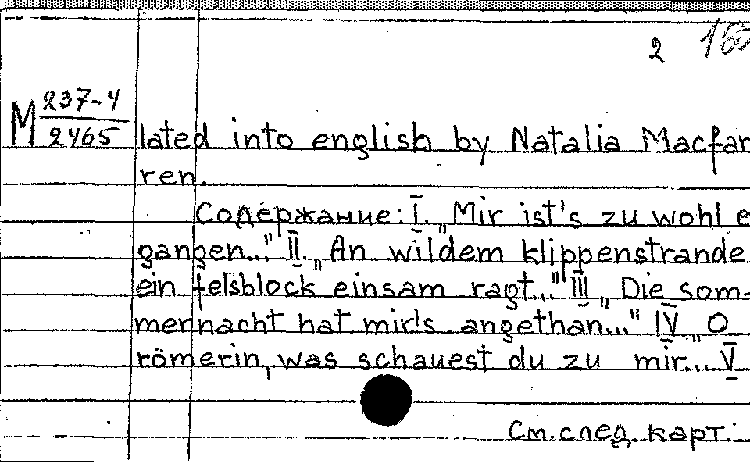 2
M 237-4
2465
lated into english by Natalia Macfar
ren.
Содержание: I. „Mir ist's zu wohl e
gangen..." II. „An wildem klippenstrande
ein felsblock einsam ragt..." III „Die som-
mernacht hat mir's angethan..." IV „O
römerin, was schauest du zu mir... V
См. след. карт.